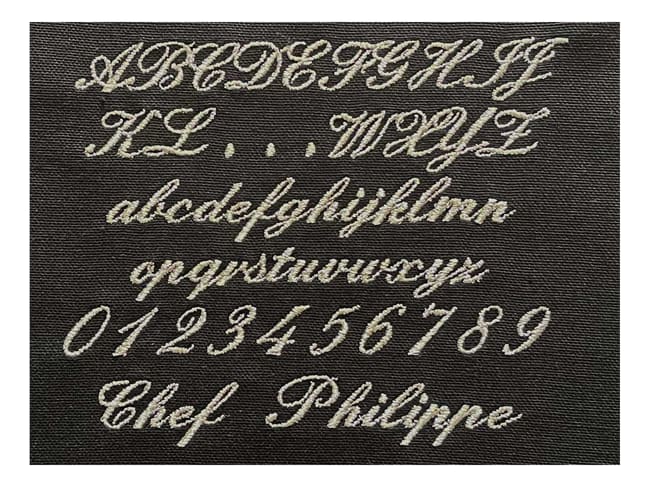 ABCDEFGHIJ
KL...WXYZ
abcdefghijklmn
opqrstuvwxyz
0123456789
Chef Philippe